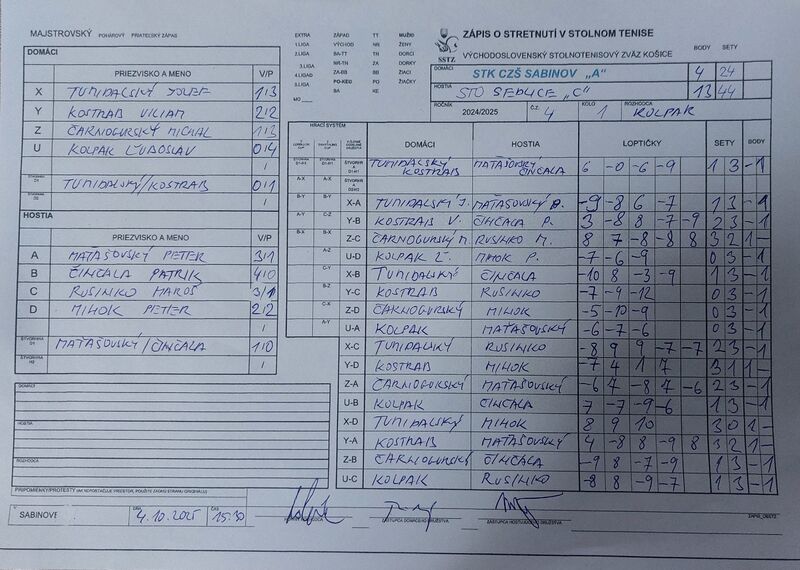 MAJSTROVSKÝ POHÁROVÝ PRIATEĽSKÝ ZÁPAS
DOMÁCI
PRIEZVISKO A MENO V/P
X TUNIDALSKÝ JOZEF 1/3
Y KOSTRAB VILIAM 2/2
Z ČARNOGURSKÝ MICHAL 1/3
U KOLPAK ĽUBOSLAV 0/4
TUNIDALSKÝ/KOSTRAB 0/1
HOSTIA
PRIEZVISKO A MENO V/P
A MAŤAŠOVSKÝ PETER 3/1
B ČINČALA PATRIK 4/0
C RUSINKO MAROŠ 3/1
D MIHOK PETER 2/2
MAŤAŠOVSKÝ/ČINČALA 1/0
DOMÁCI
HOSTIA
ROZHODCA
SABINOV 4.10.2025 15:30
EXTRA ZÁPAD TT MUŽI
1.LIGA VÝCHOD NR ŽENY
2.LIGA BA-TT TN DORCI
3.LIGA NR-TN ZA DORKY
4.LIGA ZA-BB BB ŽIACI
5.LIGA PO-KE PO ŽIAČKY
BA KE
MO
SSTZ
ZÁPIS O STRETNUTÍ V STOLNOM TENISE
VÝCHODOSLOVENSKÝ STOLNOTENISOVÝ ZVÄZ KOŠICE BODY SETY
DOMÁCI STK CZŠ SABINOV „A" 4 24
HOSTIA STO SEDLICE „C" 13 44
ROČNÍK 2024/2025 Č.Z. 4 KOLO 1 ROZHODCA KOLPAK
HRACÍ SYSTÉM
DOMÁCI HOSTIA LOPTIČKY SETY BODY
TUNIDALSKÝ KOSTRAB MAŤAŠOVSKÝ ČINČALA 6 -0 -6 -9 1 3 -1
X-A TUNIDALSKÝ J. MAŤAŠOVSKÝ P. -9 -8 6 -7 1 3 -1
Y-B KOSTRAB V. ČINČALA P. 3 -8 8 -7 -9 2 3 -1
Z-C ČARNOGURSKÝ M. RUSINKO M. 8 7 -8 -8 8 3 2 1-
U-D KOLPAK Ľ. MIHOK P. -7 -6 -9 0 3 -1
X-B TUNIDALSKÝ ČINČALA -10 8 -3 -9 1 3 -1
Y-C KOSTRAB RUSINKO -7 -9 -12 0 3 -1
Z-D ČARNOGURSKÝ MIHOK -5 -10 -9 0 3 -1
U-A KOLPAK MAŤAŠOVSKÝ -6 -7 -6 0 3 -1
X-C TUNIDALSKÝ RUSINKO -8 9 9 -7 -7 2 3 -1
Y-D KOSTRAB MIHOK -7 4 1 7 3 1 1-
Z-A ČARNOGURSKÝ MAŤAŠOVSKÝ -6 7 -8 7 -6 2 3 -1
U-B KOLPAK ČINČALA 7 -7 -9 -6 1 3 -1
X-D TUNIDALSKÝ MIHOK 8 9 10 3 0 1-
Y-A KOSTRAB MAŤAŠOVSKÝ 4 -8 8 -9 8 3 2 1-
Z-B ČARNOGURSKÝ ČINČALA -9 8 -7 -9 1 3 -1
U-C KOLPAK RUSINKO -8 8 -9 -7 1 3 -1